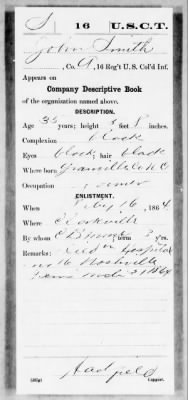 S | 16 | U.S.C.T.
John Smith
, Co. A, 16 Reg't U. S. Col'd Inf.
Appears on
Company Descriptive Book
of the organization named above.
DESCRIPTION.
Age 35 years; height 5 feet 8 inches.
Complexion black
Eyes black; hair black
Where born Granville Co N C
Occupation Farmer
ENLISTMENT.
When Feby 16, 1864
Where Clarksville
By whom ; term 3 y'rs.
Remarks: Died in Hospital
no 16 Nashville
Tenn 21 1864
Hadfield
Copyist.